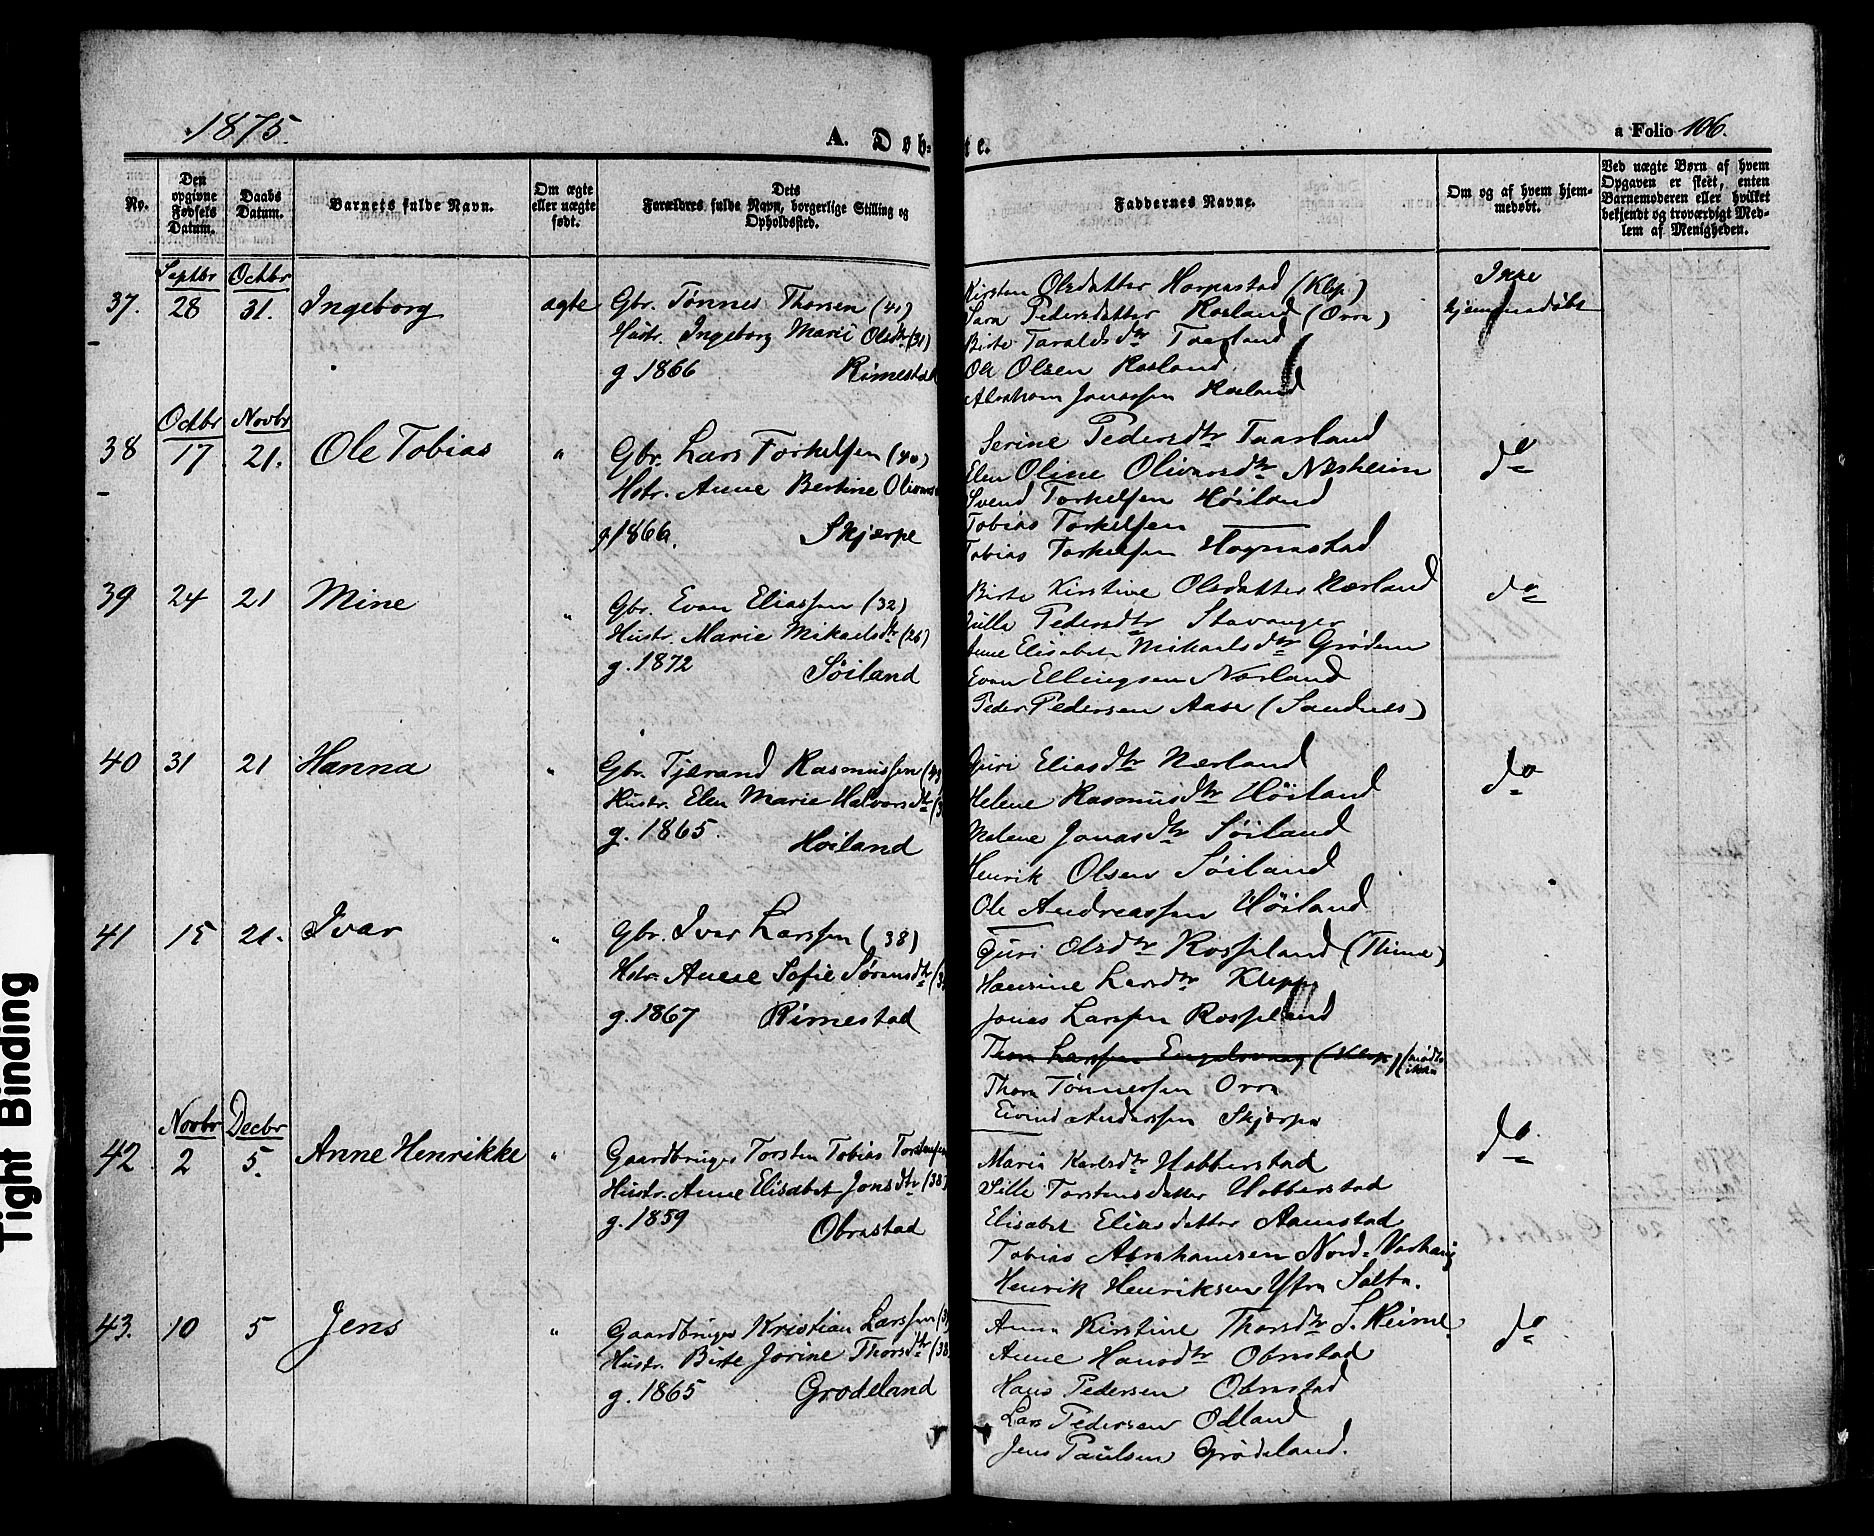 1875.
A. Døb-
te.
a Folio 106.
No.
Den opgivne Fødsels Datum.
Daabs Datum.
Barnets fulde Navn.
Om ægte eller uægte født.
Dets Forældres fulde Navn, borgerlige Stilling og Opholdssted.
Faddernes Navne.
Om og af hvem hjem-
medøbt.
Ved uægte Børn af hvem
Opgaven er skeet, enten
Barnemoderen eller hvilket
bekjendt og troværdigt Med-
lem af Menigheden.
Septbr Octbr
37. 28 31. Ingeborg ægte Gbr. Tønnes Thorsen (41)
Hustr. Ingeborg Marie Olsdtr (31)
g 1866 Rimestad
Kirsten Olsdatter Horpestad (Klep)
Sara Pedersdatter Rosland (Orre)
Birte Taraldsdtr Taarland
Ole Olsen Rosland
Abraham Jonassen Rosland
Ikke
hjemmedøbt
Octbr Novbr
38 17 21. Ole Tobias " Gbr. Lars Torkelsen (40)
Hstr. Anne Bertine
g. 1866. Skjærpe
Serine Pedersdtr Taarland
Elen Oline Olivarsdtr Næsheim
Svend Torkelsen Høiland
Tobias Torkelsen
Tobias Torkelsen Hognestad
do
39 24 21 Mine " Gbr. Even Eliassen (32)
Hustr. Marie Mikaelsdtr (26)
g. 1872 Søiland
Birte Kirstine Olsdatter Nærland
Pedersdtr Stavanger
Anne Elisabeth Mikaelsdtr Grødem
Even Ellingsen Nærland
Peder Pedersen Aase (Sandnes)
do
40 31 21 Hanna " Gbr. Tjærand Rasmussen
Hustr. Elen Marie Halvorsdtr
g. 1865. Høiland
Guri Eliasdtr Nærland
Helene Rasmusdtr Høiland
Malene Jonasdtr Søiland
Henrik Olsen Søiland
Ole Andreassen Høiland
do
41 15 21. Ivar " Gbr. Iver Larssen (38)
Hstr. Anne Sofie Sørensdtr
g. 1867 Rimestad
Guri Olsdtr Rosseland (Thime)
Hansine Larsdtr Klepp
Jonas Larssen Rosseland
Thore Larssen Engelsvaag (Klep)
Thore Tønnessen Orre
Eivind Anderssen Skjærpe
Novbr Decbr
42 2 5. Anne Henrikke " Gaardbruger Torsten Tobias Torstensen
Hustr. Anne Elisabet Jonsdtr (38)
g. 1859 Obrestad
Maria Karlsdtr Habberstad
Sille Torstensdatter Habberstad
Elisabet Eliasdatter Aamstad
Tobias Abrahamsen Nord-Varhaug
Henrik Henriksen Yttre Salte.
do
43. 10 5 Jens " Gaardbruger Kristian Larssen
Hustr. Birte Jorine Thorsdtr (38
g. 1865 Grødeland
Anna Kirstine Thorsdtr S. Reime
Anne Hansdtr Obrestad
Hans Pedersen Obrestad
Lars Pedersen Odland
Jens Paulsen Grødeland.
do
Tight Binding